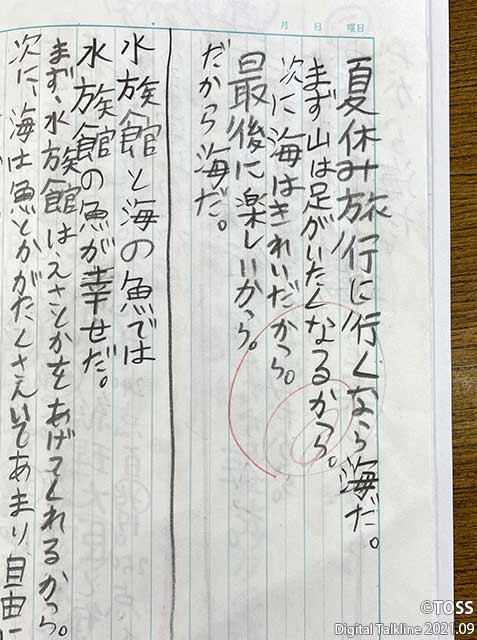 月 日 曜日
夏休み旅行に行くなら海だ。
まず山は足がいたくなるから。
次に海はきれいだから。
最後に楽しいから。
だから海だ。
水族館と海の魚では
水族館の魚が幸せだ。
まず、水族館はえさとかをあげてくれるから。
次に、海は魚とかがたくさんいてあまり自由に
©TOSS
Digital Talkline 2021.09